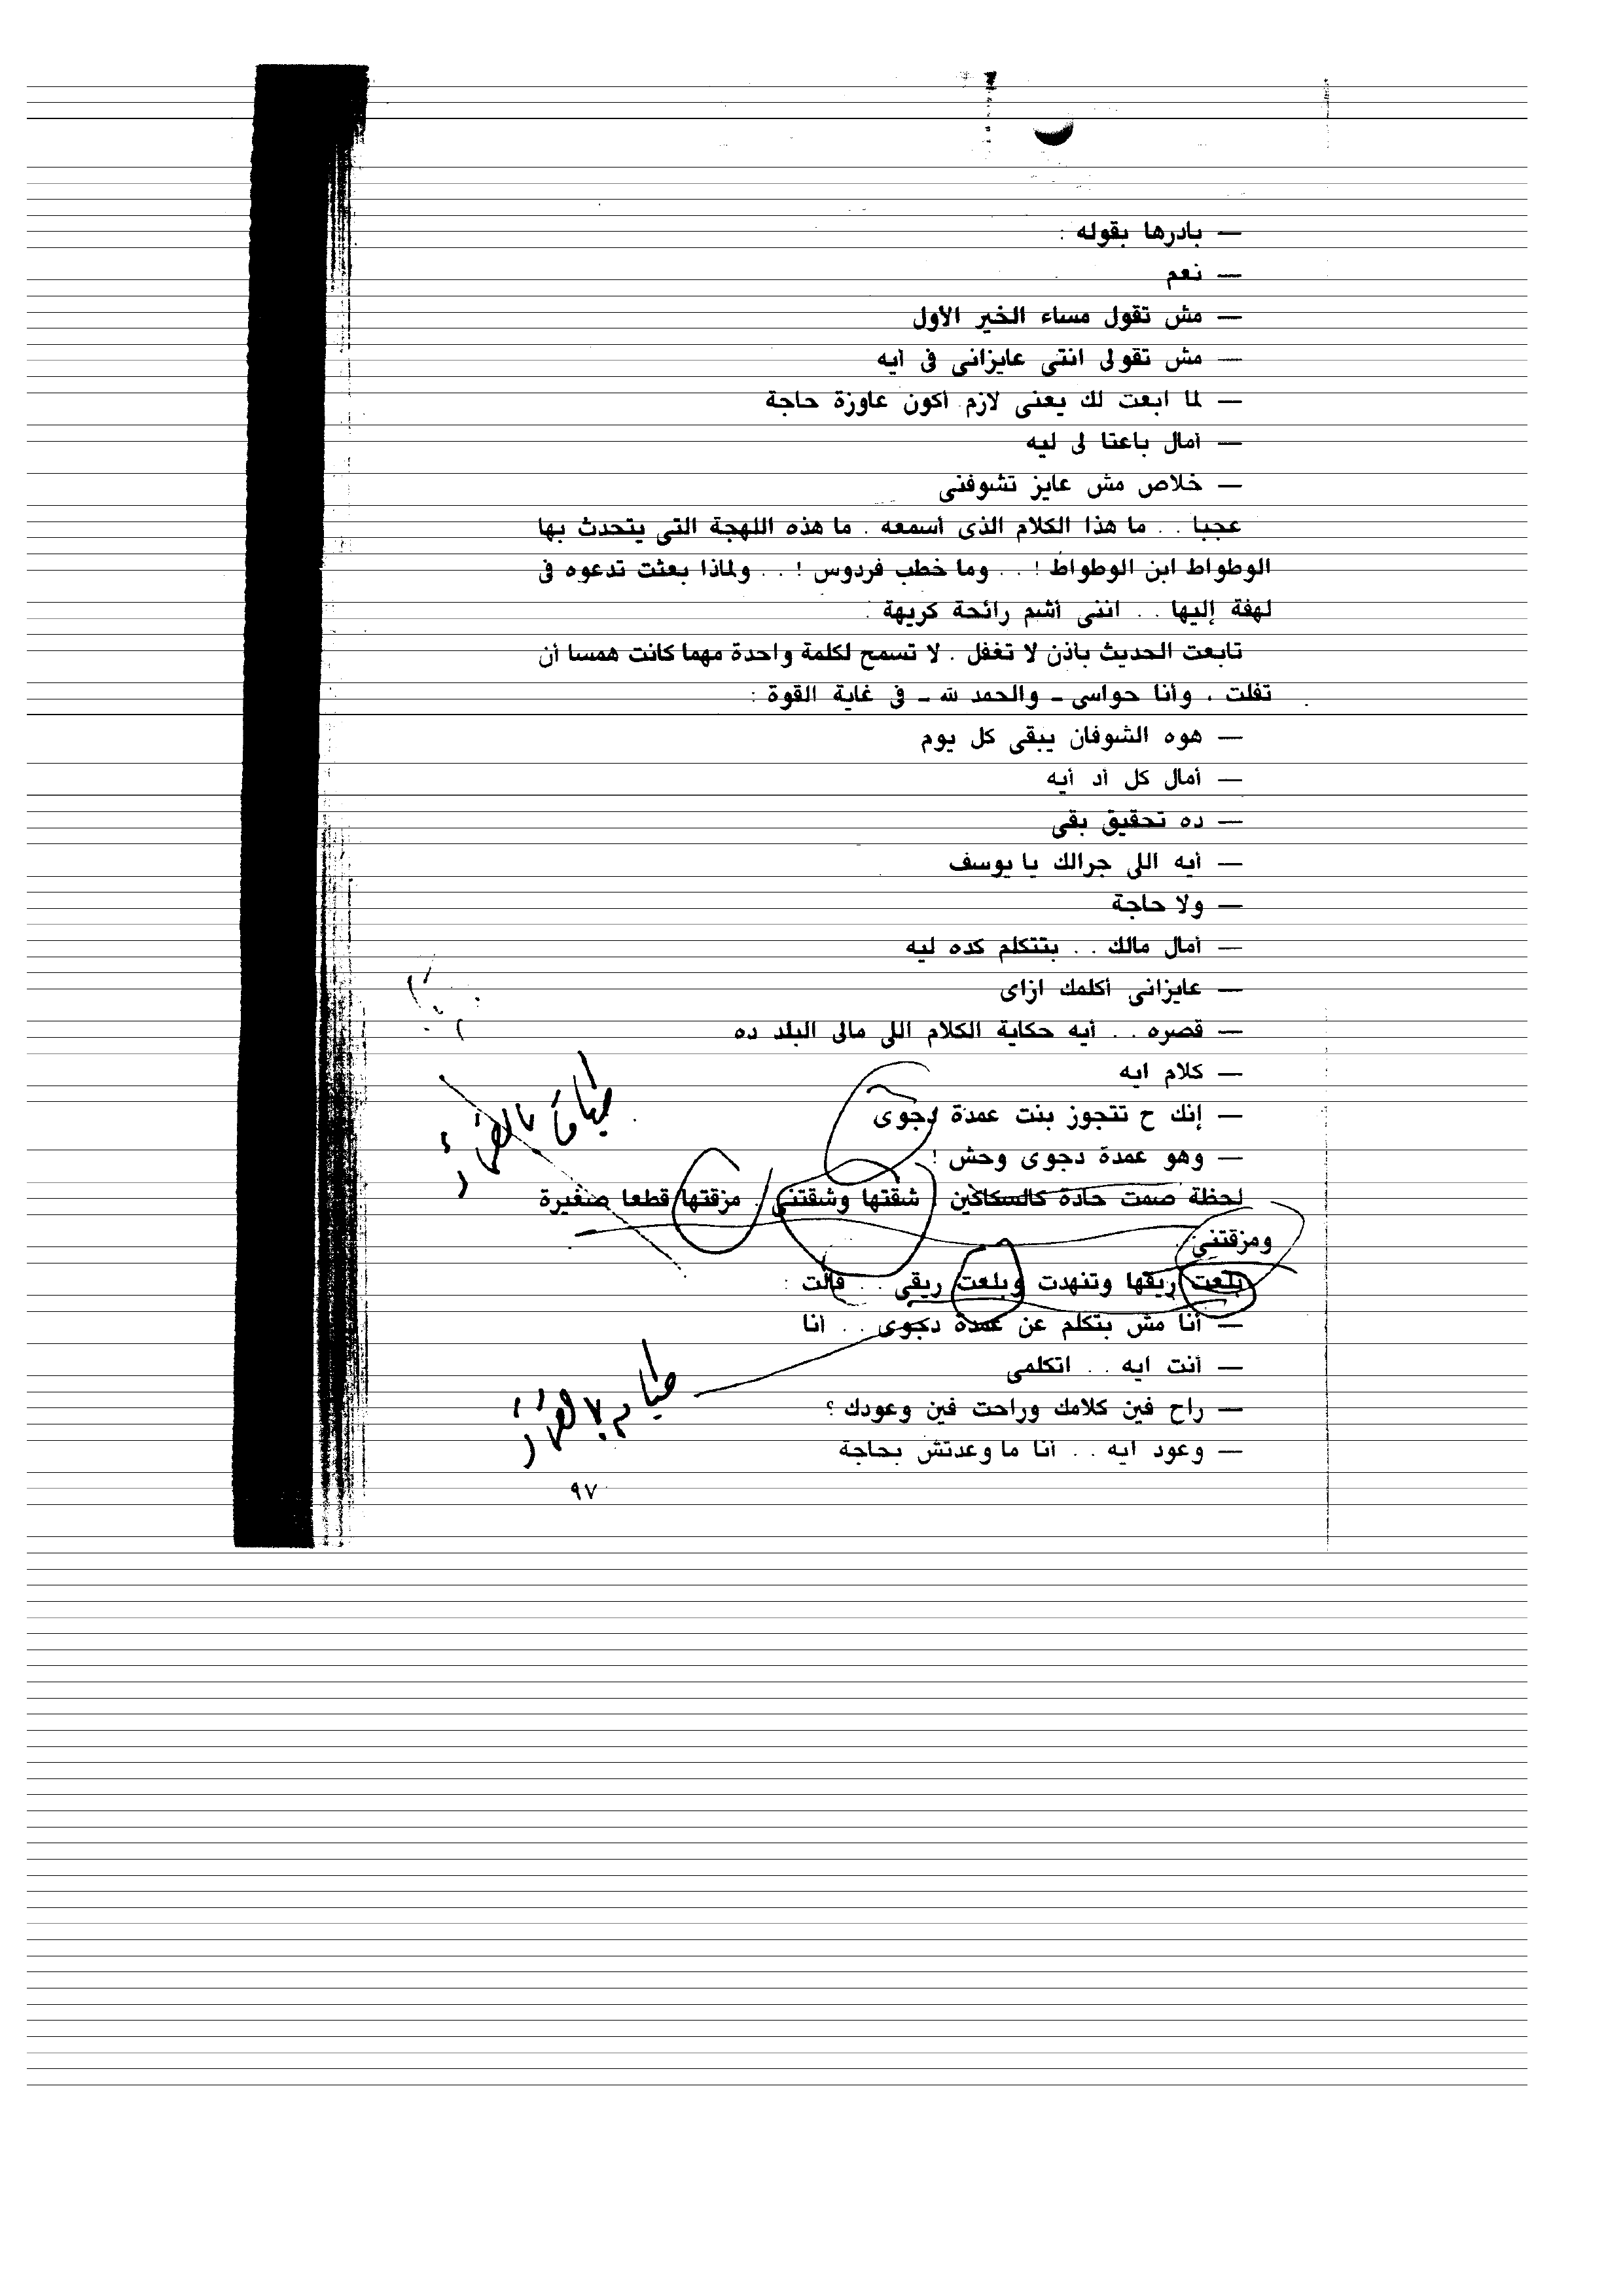 — بادرها بقوله :
— نعم
— مش تقول مساء الخير الأول
— مش تقولى انتى عايزانى فى أيه
— لما ابعت لك يعنى لازم أكون عاوزة حاجة
— أمال باعتا لى ليه
— خلاص مش عايز تشوفنى
عجبا . . ما هذا الكلام الذى أسمعه . ما هذه اللهجة التى يتحدث بها
الوطواط ابن الوطواط ! . . وما خطب فردوس ! . . ولماذا بعثت تدعوه فى
لهفة إليها . . اننى أشم رائحة كريهة .
تابعت الحديث بأذن لا تغفل . لا تسمح لكلمة واحدة مهما كانت همسا أن
تفلت ، وأنا حواسى ـ والحمد لله ـ فى غاية القوة :
— هوه الشوفان يبقى كل يوم
— أمال كل أد أيه
— ده تحقيق بقى
— أيه اللى جرالك يا يوسف
— ولا حاجة
— أمال مالك . . بتتكلم كده ليه
— عايزانى أكلمك ازاى
— قصره . . أيه حكاية الكلام اللى مالى البلد ده
— كلام ايه
— إنك ح تتجوز بنت عمدة دجوى
— وهو عمدة دجوى وحش !
لحظة صمت حادة كالسكاكين . شقتها وشقتنى . مزقتها قطعا صغيرة
ومزقتنى .
بلعت ريقها وتنهدت وبلعت ريقى . . قالت :
— أنا مش بتكلم عن عمدة دجوى . . أنا
— أنت ايه . . اتكلمى
— راح فين كلامك وراحت فين وعودك ؟
— وعود ايه . . أنا ما وعدتش بحاجة
٩٧